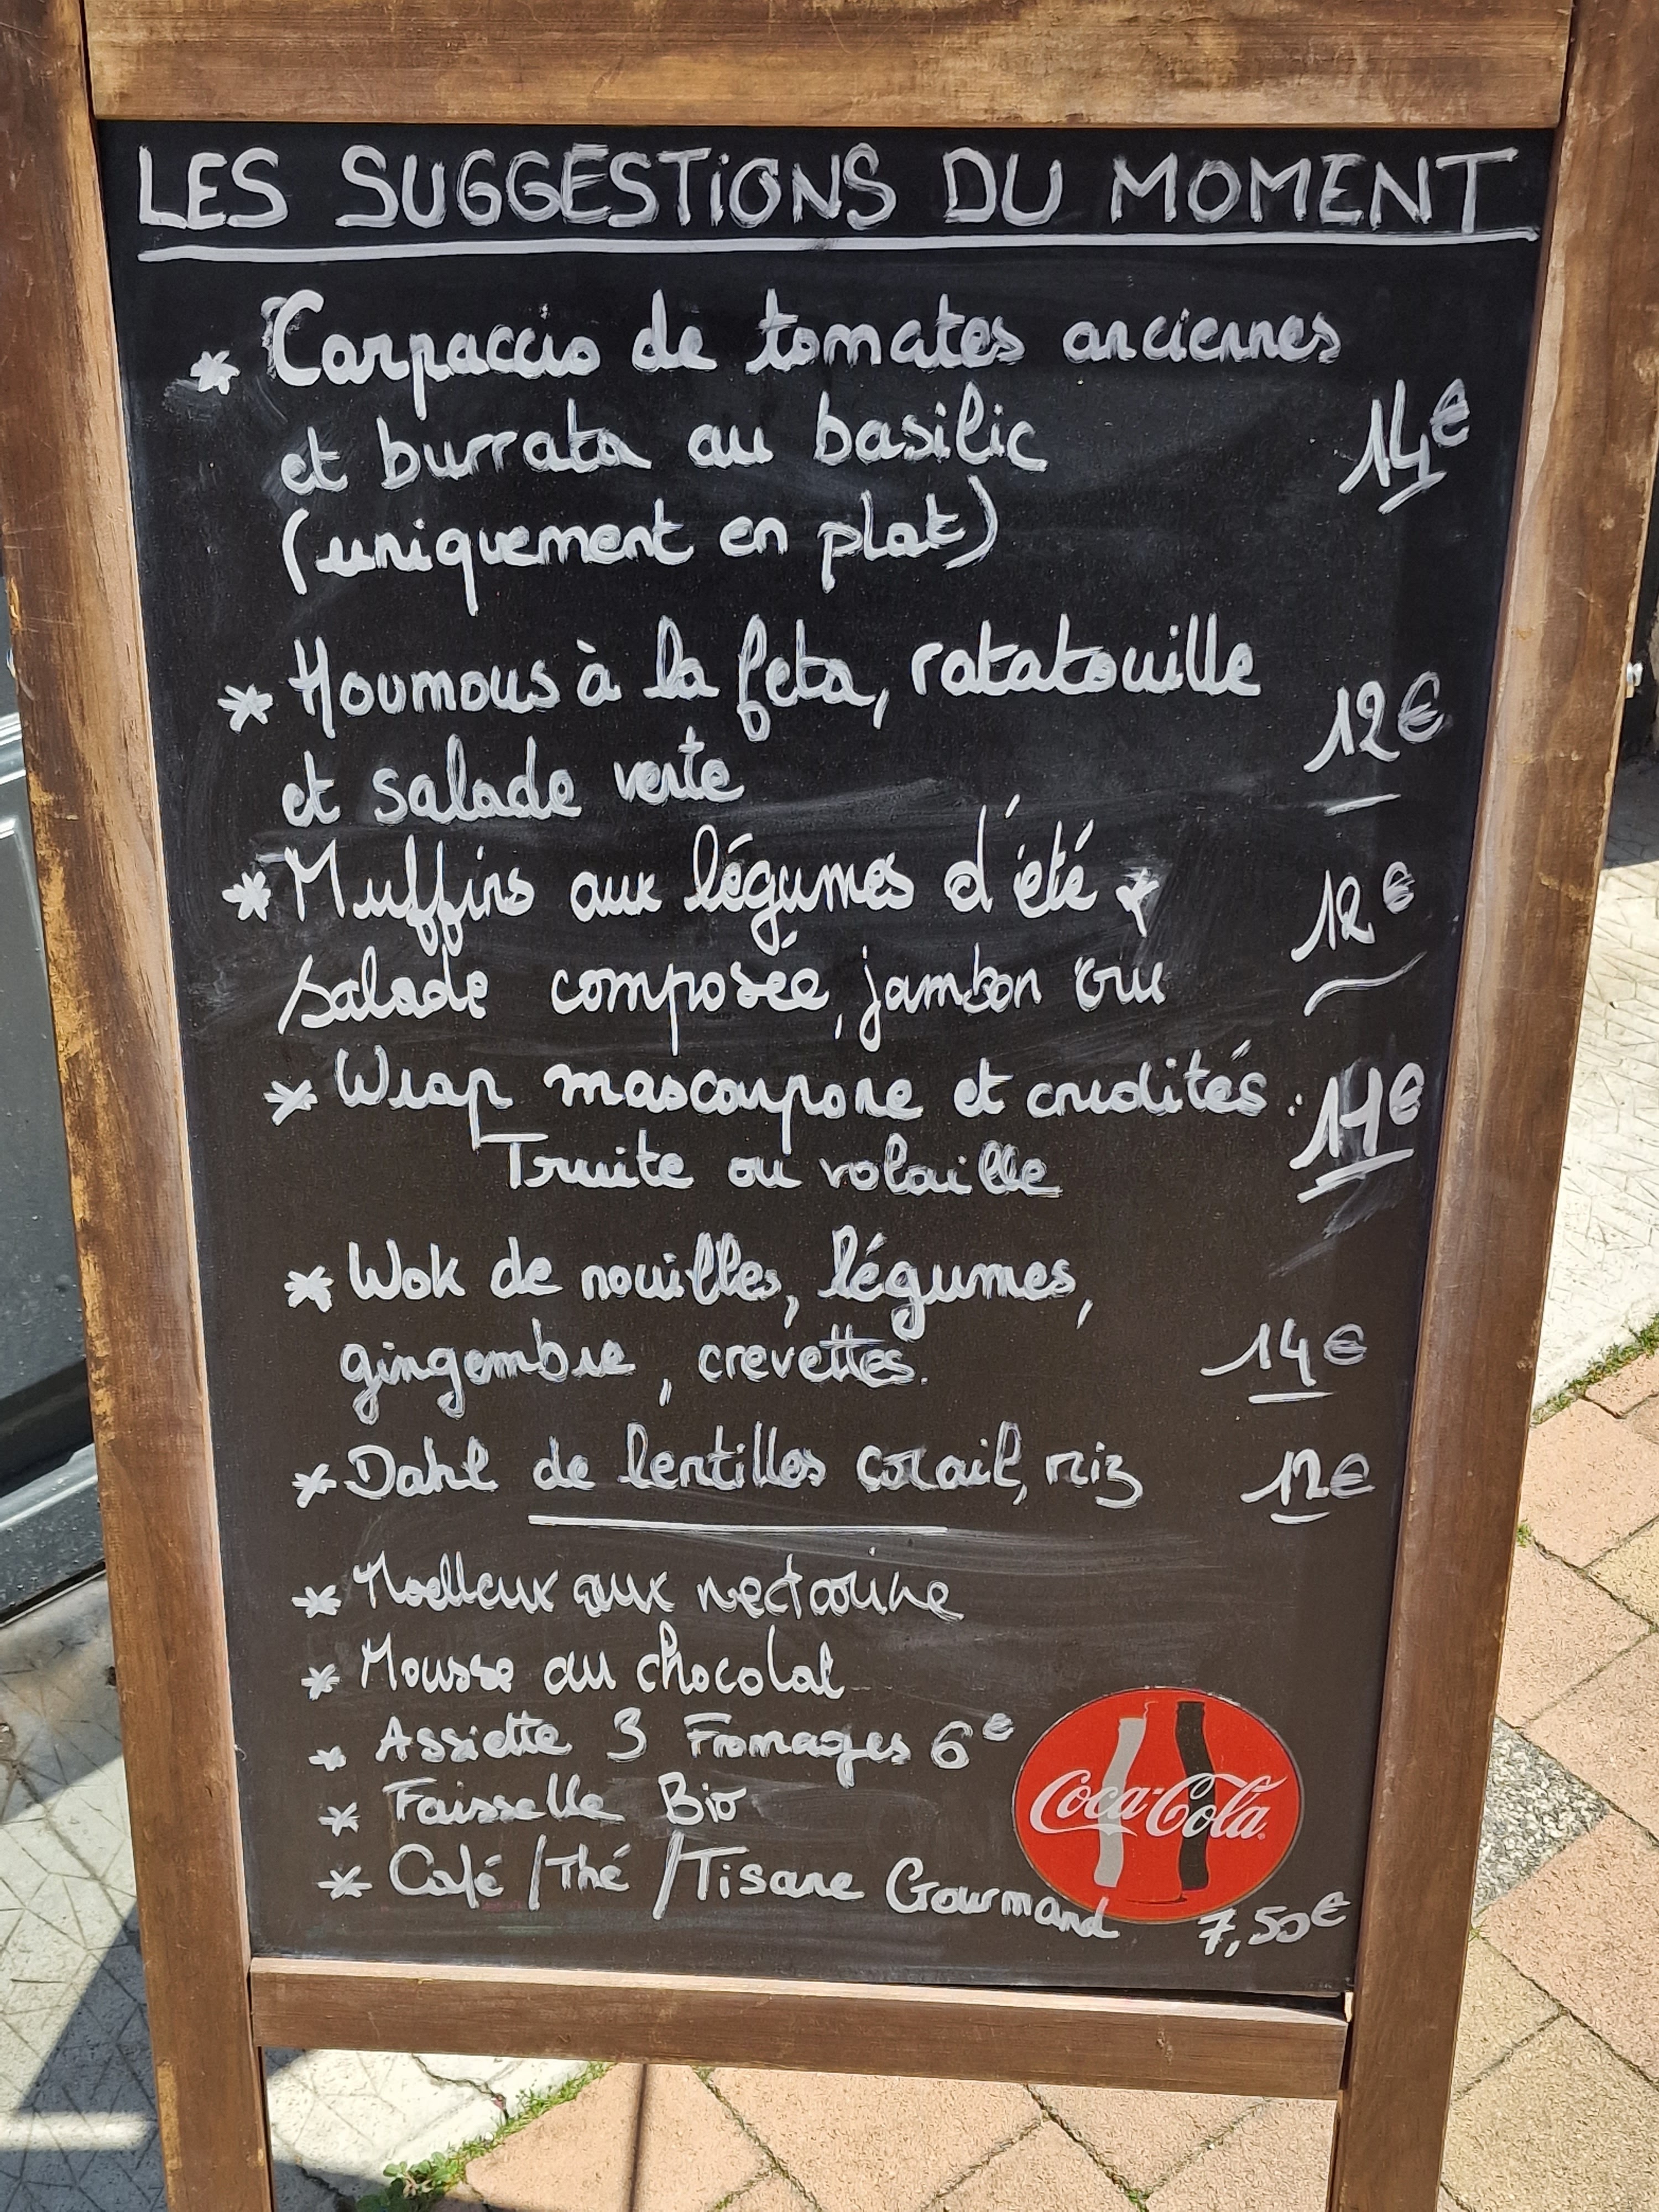 LES SUGGESTIONS DU MOMENT
* Carpaccio de tomates anciennes
et burrata au basilic 14€
(uniquement en plat)
* Houmous à la feta, ratatouille
et salade verte 12€
* Muffins aux légumes d'été & 12€
salade composée, jambon cru
* Wrap mascarpone et crudités.
Truite ou volaille 11€
* Wok de nouilles, légumes,
gingembre, crevettes. 14€
* Dahl de lentilles corail, riz 12€
* Moelleux aux nectarine
* Mousse au chocolat
* Assiette 3 Fromages 6€
* Faisselle Bio
* Café /Thé /Tisane Gourmand 7,50€
Coca-Cola